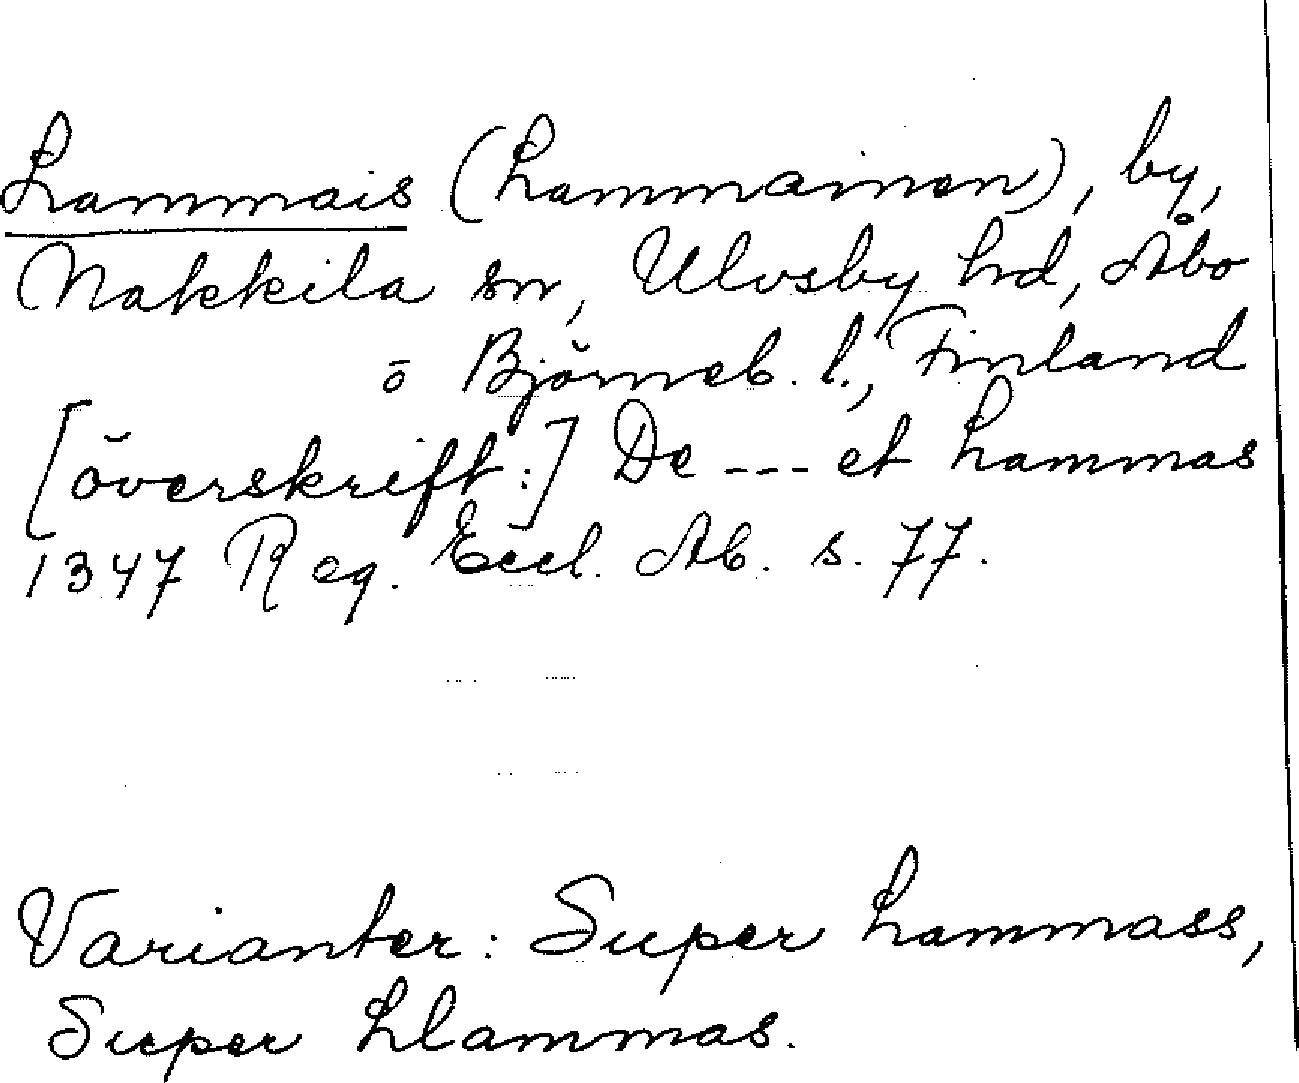 Lammais (Lammainen), by,
Nakkila sn, Ulvsby hd, Åbo
o Björneb. l., Finland
[överskrift:] De --- et Lammas
1347 Reg. Eccl. Ab. s. 77.
Varianter: Super Lammass,
Super Llammas.